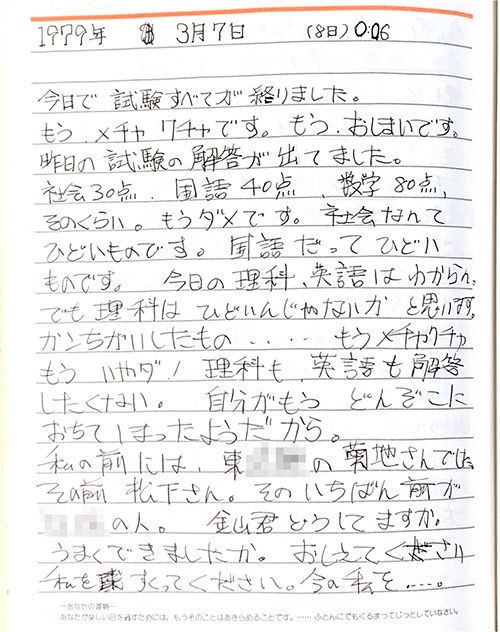 1979年 3月7日 (8日) 0:06
今日で 試験すべてが 終りました。
もう、メチャクチャです。もう、おしまいです。
昨日の 試験の 解答が 出てました。
社会30点、国語40点、数学80点、
そのくらい。もうダメです。社会なんて
ひどいものです。国語だって ひどい
ものです。 今日の理科、英語はわからん、
でも理科は ひどいんじゃないか と思います。
かんちがいしたもの ‥‥‥ もうメチャクチャ
もう いやダ! 理科も、英語も解答
したくない。 自分がもう どんぞこに
おちてしまったようだから。
私の前には、東 の 菊地さんでした
その前 松下さん。そのいちばん前が
の人。 金山君どうしてますか。
うまくできましたか。おしえてください
私を すくってください。今の私を‥‥。
―あなたの運勢―
あなたが楽しい日を過すためには、もうそのことはあきらめることです。……ふとんにでもくるまってじっとしていなさい。